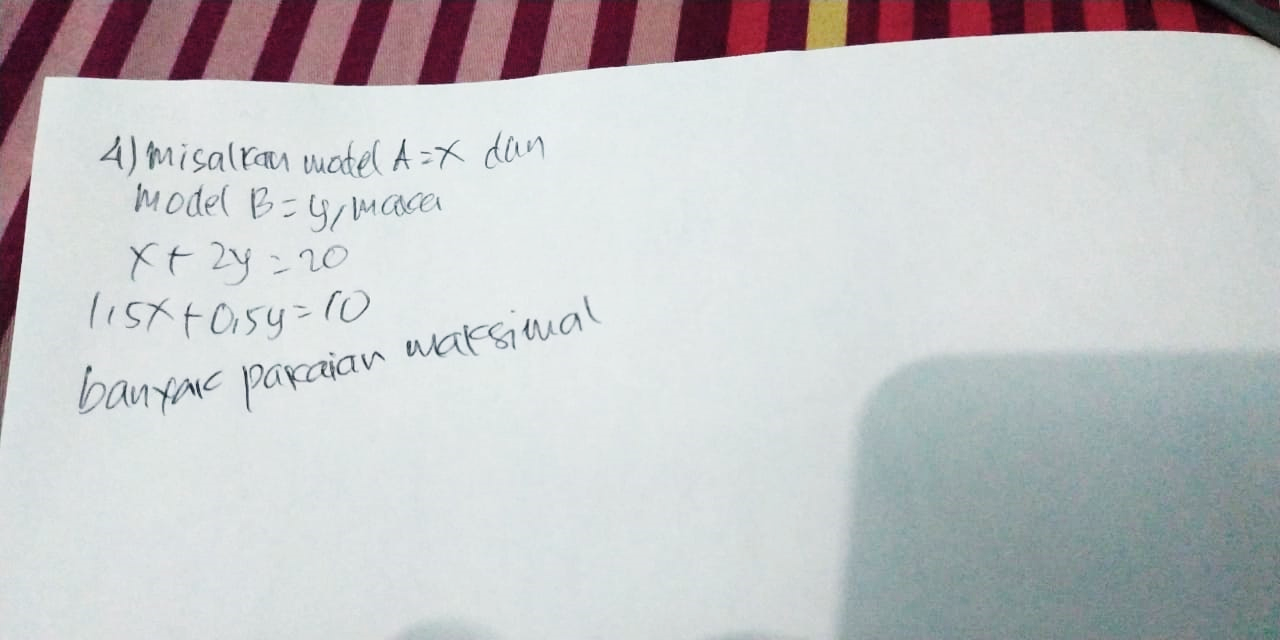 4) Misalkan model A = x dan
Model B = y, maka
x + 2y = 20
1,5x + 0,5y = 10
banyak pakaian maksimal